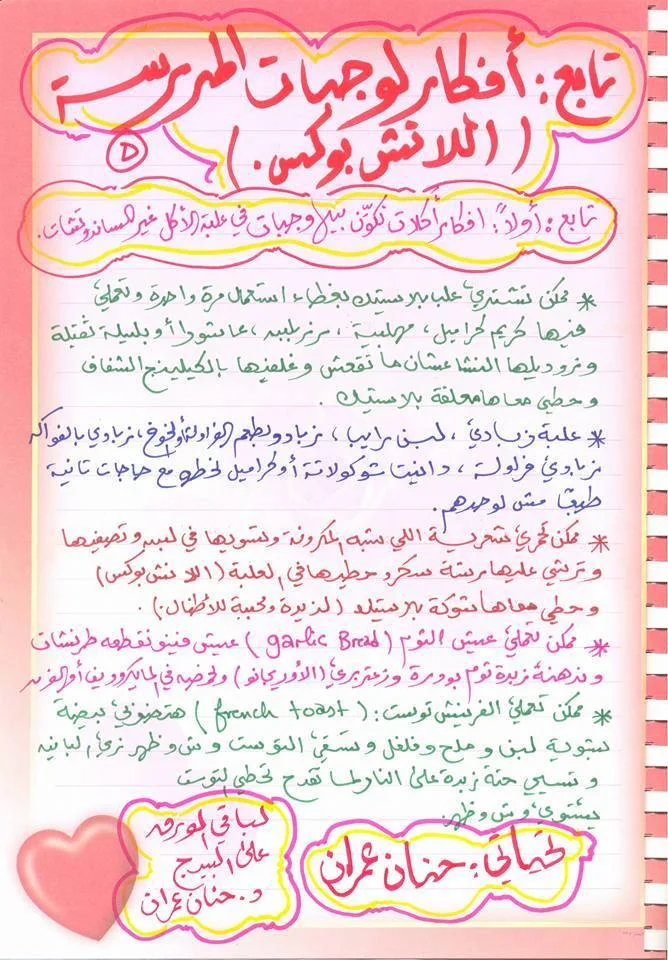 تابع: أفكار لوجبات المدرسة
(اللانش بوكس.)
٥
تابع: أولاً: افكار أكلات تكوّن بيها وجبات في علبة الأكل غير الساندوتشات.
* ممكن تشتري علب بلاستيك بغطاء استعمال مرة واحدة وتعملي
فيها كريم كراميل، مهلبية، رز بلبن، عاشورا أو بليلة تقيلة
وتزوديلها النشا عشان ما تقعش وغلفيها بالكيلينج الشفاف
وحطي معاها معلقة بلاستيك.
* علبة زبادي، لبن رايب، زبادو بطعم الفراولة أو الخوخ، زبادي بالفواكه
زبادي فراولة، دانيت شوكولاتة أو كراميل تحطيه مع حاجات تانية
طبعًا مش لوحدهم.
* ممكن تحمري شعرية اللي شبه المكرونة وتسويها في لبن وتصفيها
وترشي عليها رشة سكر وحطيها في العلبة (اللانش بوكس)
وحطي معاها شوكة بلاستيك (لذيذة ومحببة للأطفال).
* ممكن تعملي عيش التوم (garlic Bread) عيش فينو نقطعه طرنشات
وندهنه زبدة توم بودرة وزعتر بري (الأوريجانو) وتحمصيه في المايكروويف أو الفرن
* ممكن تعملي الفرينش توست: (french toast) هتضربي بيضة
بشوية لبن وملح وفلفل وتسقي التوست وش وظهر زي البانيه
وتسيحي حتة زبدة على النار لما تقدح تحطي التوست
يستوي وش وظهر.
تحياتي: حنان عمران
الباقي الموقع
على البيدج
د. حنان عمران